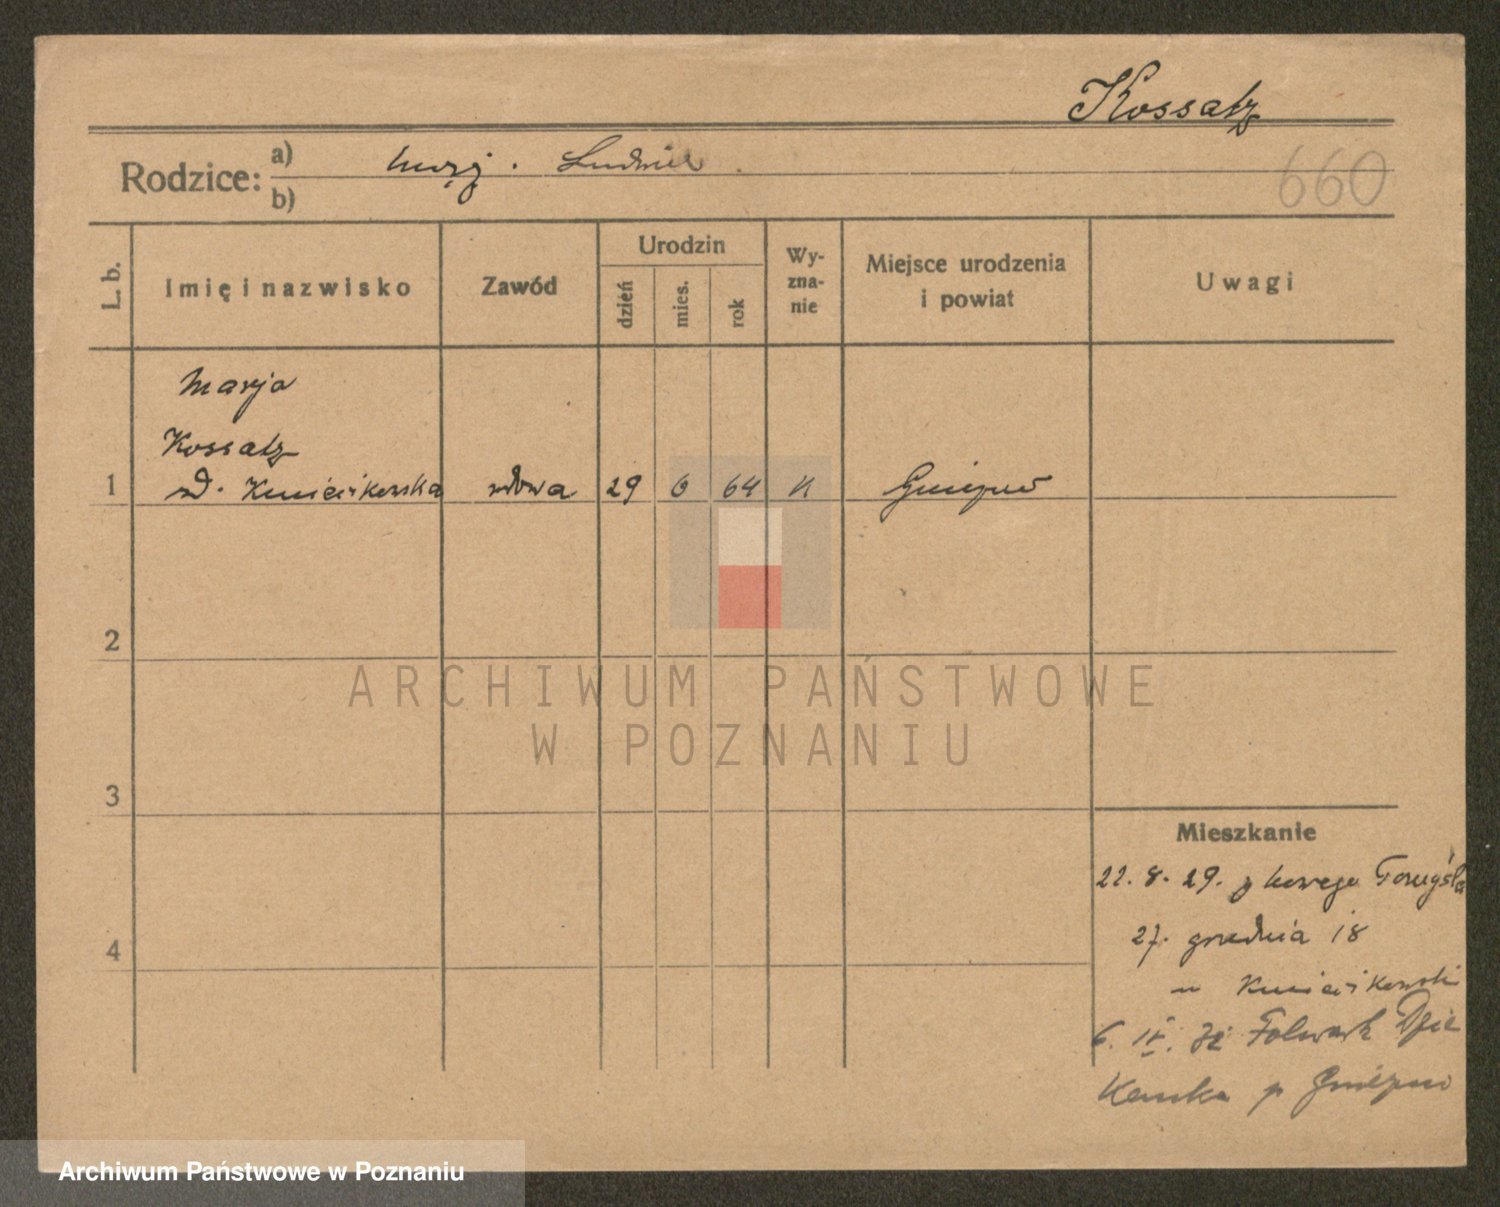 Kossatz
Rodzice: a) mąż. Ludwik
b)
660
L. b.
Imię i nazwisko
Zawód
Urodzin
dzień
mies.
rok
Wy-
zna-
nie
Miejsce urodzenia
i powiat
Uwagi
Marja
Kossatz
1 wdowa 29 6 64 K Gniezno
2
3
4
Mieszkanie
22. 8. 29. z Nowego Tomyśla
27. grudnia 18
6. IV. 32 Folwark
p Gniezno
ARCHIWUM PAŃSTWOWE
W POZNANIU
Archiwum Państwowe w Poznaniu